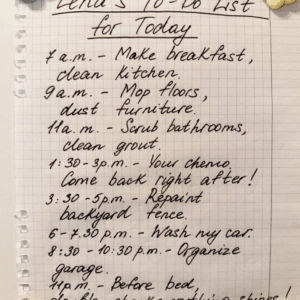 Lena's To-Do List
for Today
7 a.m. - Make breakfast,
clean kitchen.
9 a.m. - Mop floors,
dust furniture.
11 a.m. - Scrub bathrooms,
clean grout.
1:30 - 3 p.m. - Your chemo.
Come back right after!
3:30 - 5 p.m. - Repaint
backyard fence.
6 - 7.30 p.m. - Wash my car.
8:30 - 10:30 p.m. - Organize
garage.
11 p.m. - Before bed,